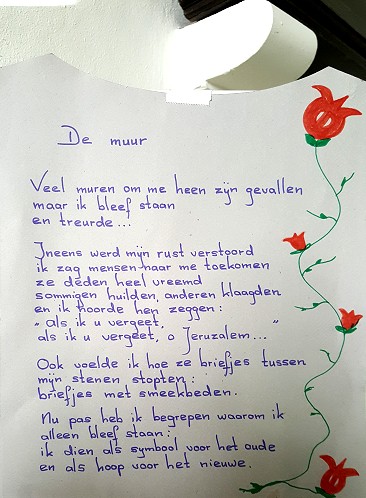 De muur
Veel muren om me heen zijn gevallen
maar ik bleef staan
en treurde...
Ineens werd mijn rust verstoord
ik zag mensen naar me toekomen
ze deden heel vreemd
sommigen huilden, anderen klaagden
en ik hoorde hen zeggen:
„als ik u vergeet,
als ik u vergeet, o Jeruzalem..."
Ook voelde ik hoe ze briefjes tussen
mijn stenen stopten:
briefjes met smeekbeden.
Nu pas heb ik begrepen waarom ik
alleen bleef staan:
ik dien als symbool voor het oude
en als hoop voor het nieuwe.